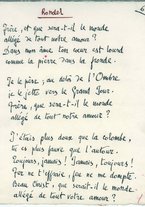 Rondel
Frère, et que sera-t-il le monde
allégé de tout notre amour ?
Dans mon âme ton cœur est lourd
comme la pierre dans la fronde.
Je te père, au delà de l'Ombre
je te jette vers le Grand Jour.
Frère, que sera-t-il le monde
allégé de tout notre amour ?
J'étais plus doux que la colombe,
le es plus fauve que l'autour.
Toujours, jamais ! Jamais, toujours !
Fer ne t'effraie, fer ne me dompte.
Beau Christ, que serait-il le monde
allégé de tout notre amour ?